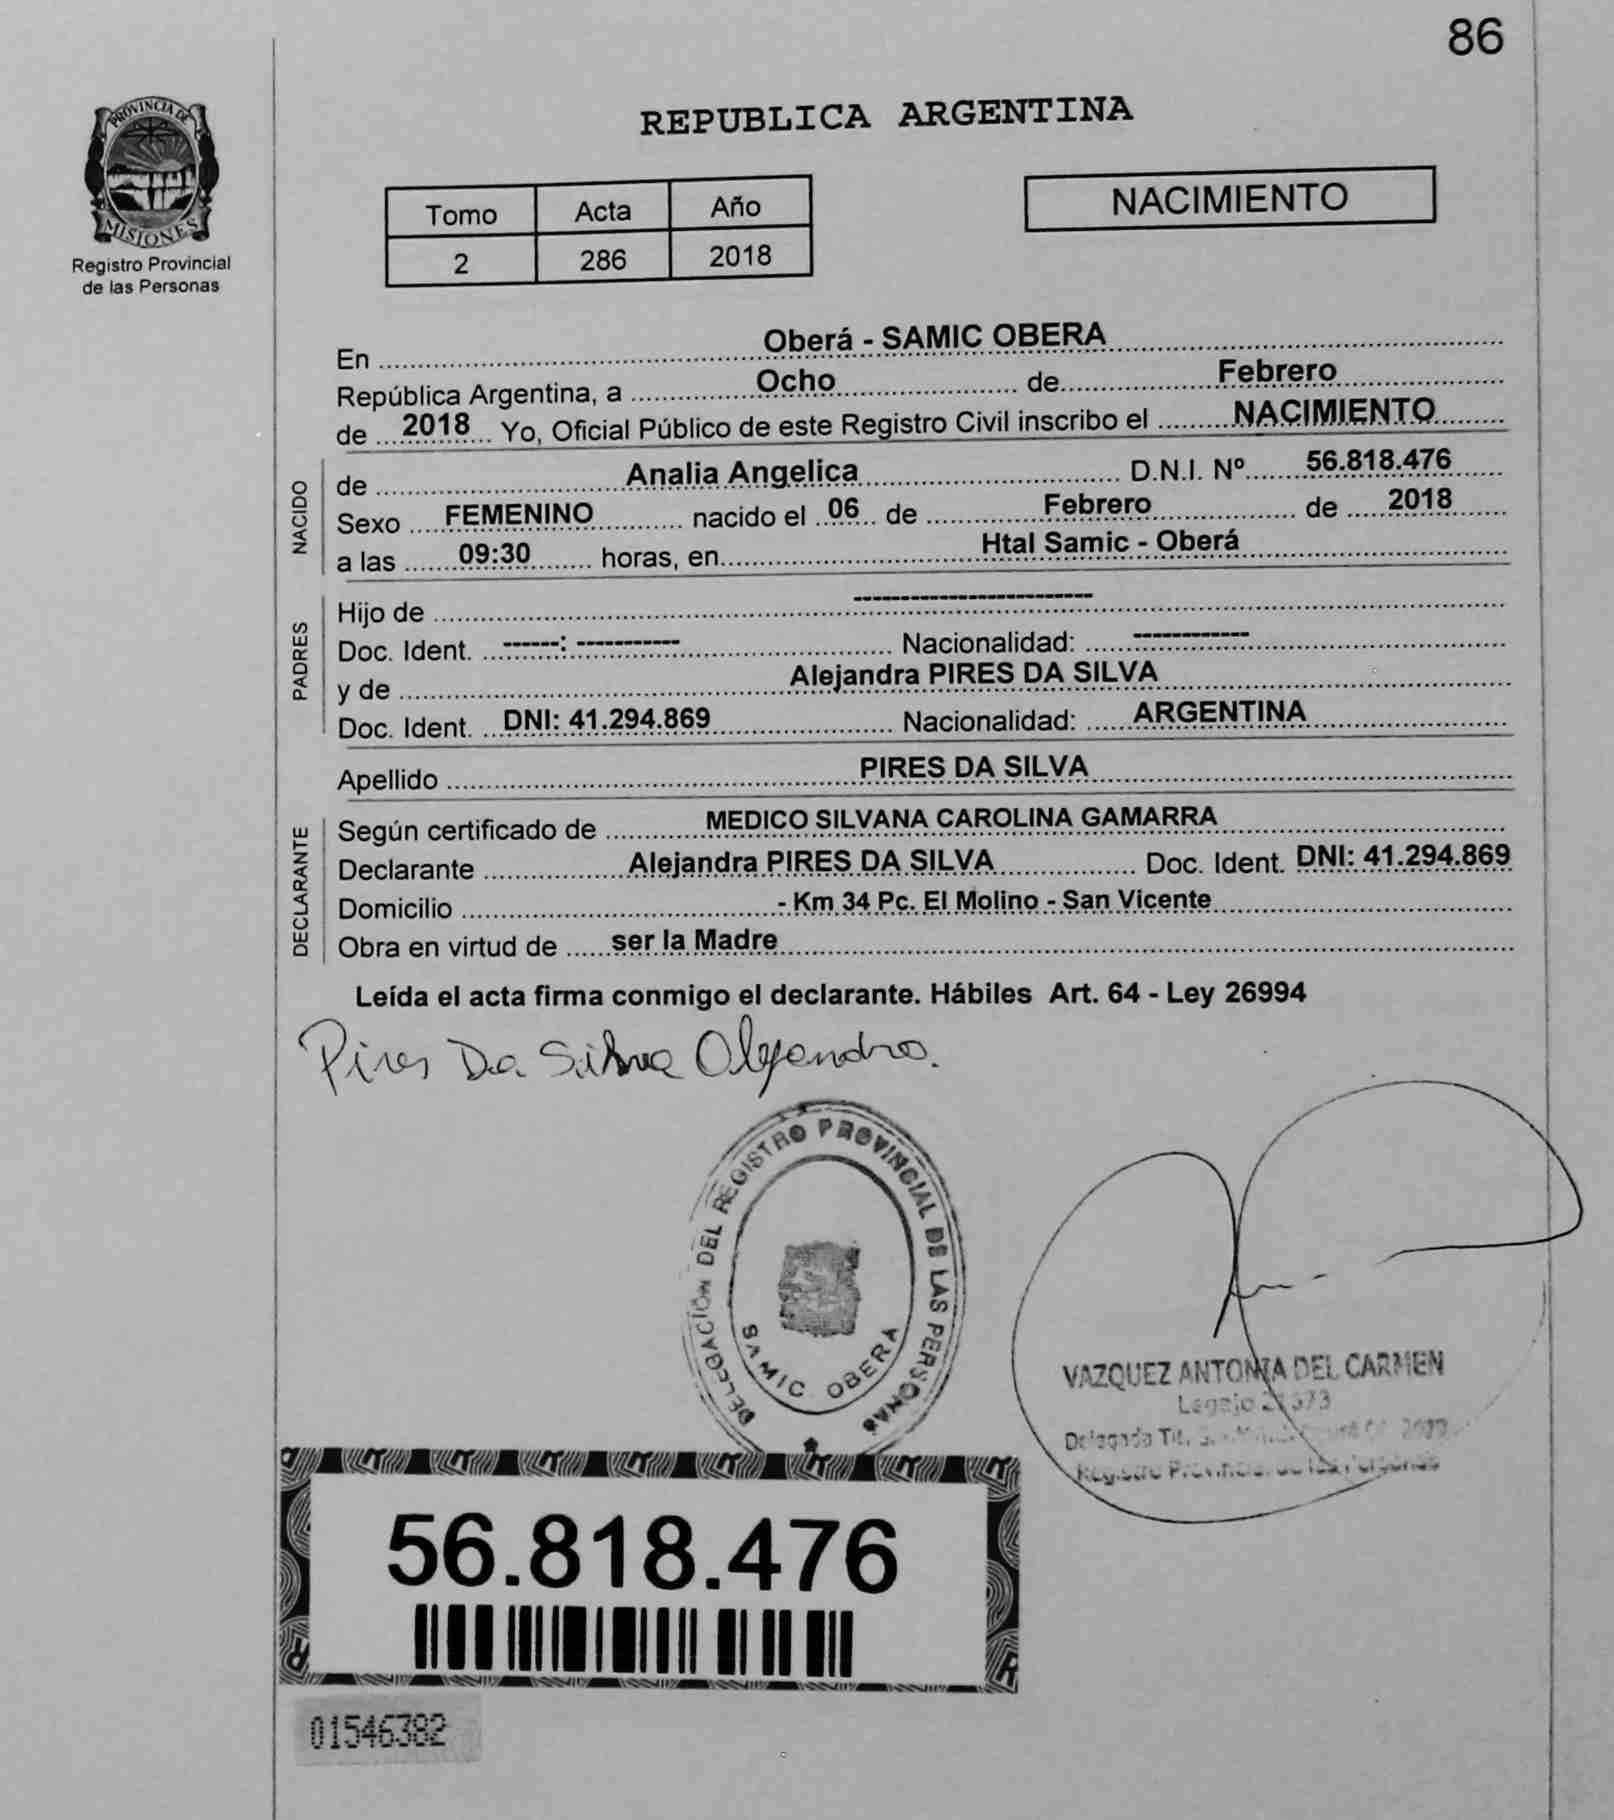 86
PROVINCIA DE
MISIONES
Registro Provincial
de las Personas
REPUBLICA ARGENTINA
Tomo Acta Año
2 286 2018
NACIMIENTO
En Oberá - SAMIC OBERA
República Argentina, a Ocho de Febrero
de 2018 Yo, Oficial Público de este Registro Civil inscribo el NACIMIENTO
NACIDO
de Analia Angelica D.N.I. Nº 56.818.476
Sexo FEMENINO nacido el 06 de Febrero de 2018
a las 09:30 horas, en Htal Samic - Oberá
PADRES
Hijo de -------------------------
Doc. Ident. ------: ----------- Nacionalidad: ------------
y de Alejandra PIRES DA SILVA
Doc. Ident. DNI: 41.294.869 Nacionalidad: ARGENTINA
Apellido PIRES DA SILVA
DECLARANTE
Según certificado de MEDICO SILVANA CAROLINA GAMARRA
Declarante Alejandra PIRES DA SILVA Doc. Ident. DNI: 41.294.869
Domicilio - Km 34 Pc. El Molino - San Vicente
Obra en virtud de ser la Madre
Leída el acta firma conmigo el declarante. Hábiles Art. 64 - Ley 26994
Pires Da Silva Alejandra.
DELEGACIÓN DEL REGISTRO PROVINCIAL DE LAS PERSONAS
SAMIC OBERA
VAZQUEZ ANTONIA DEL CARMEN
Legajo
Delegada Tit.
Registro Provincial de las Personas
56.818.476
01546382